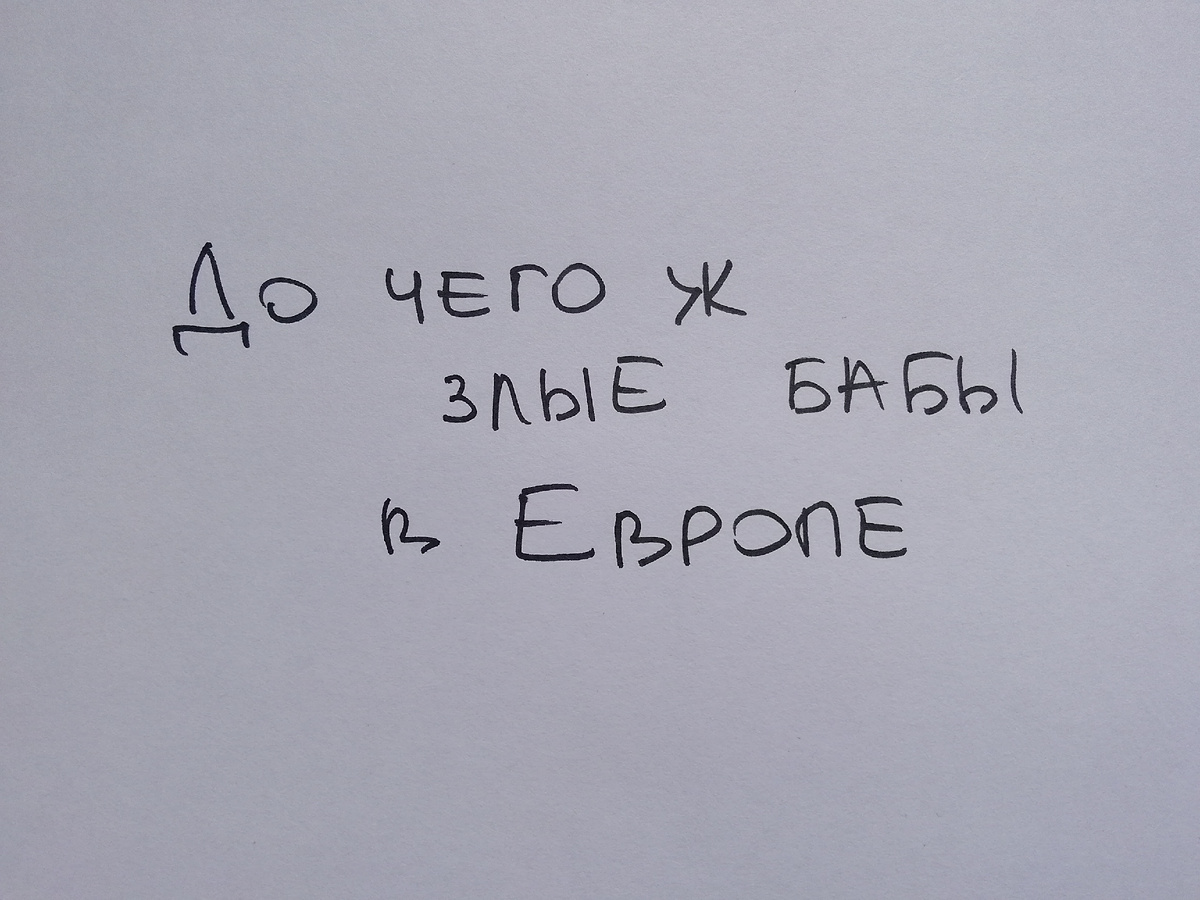 До чего ж
злые бабы
в Европе